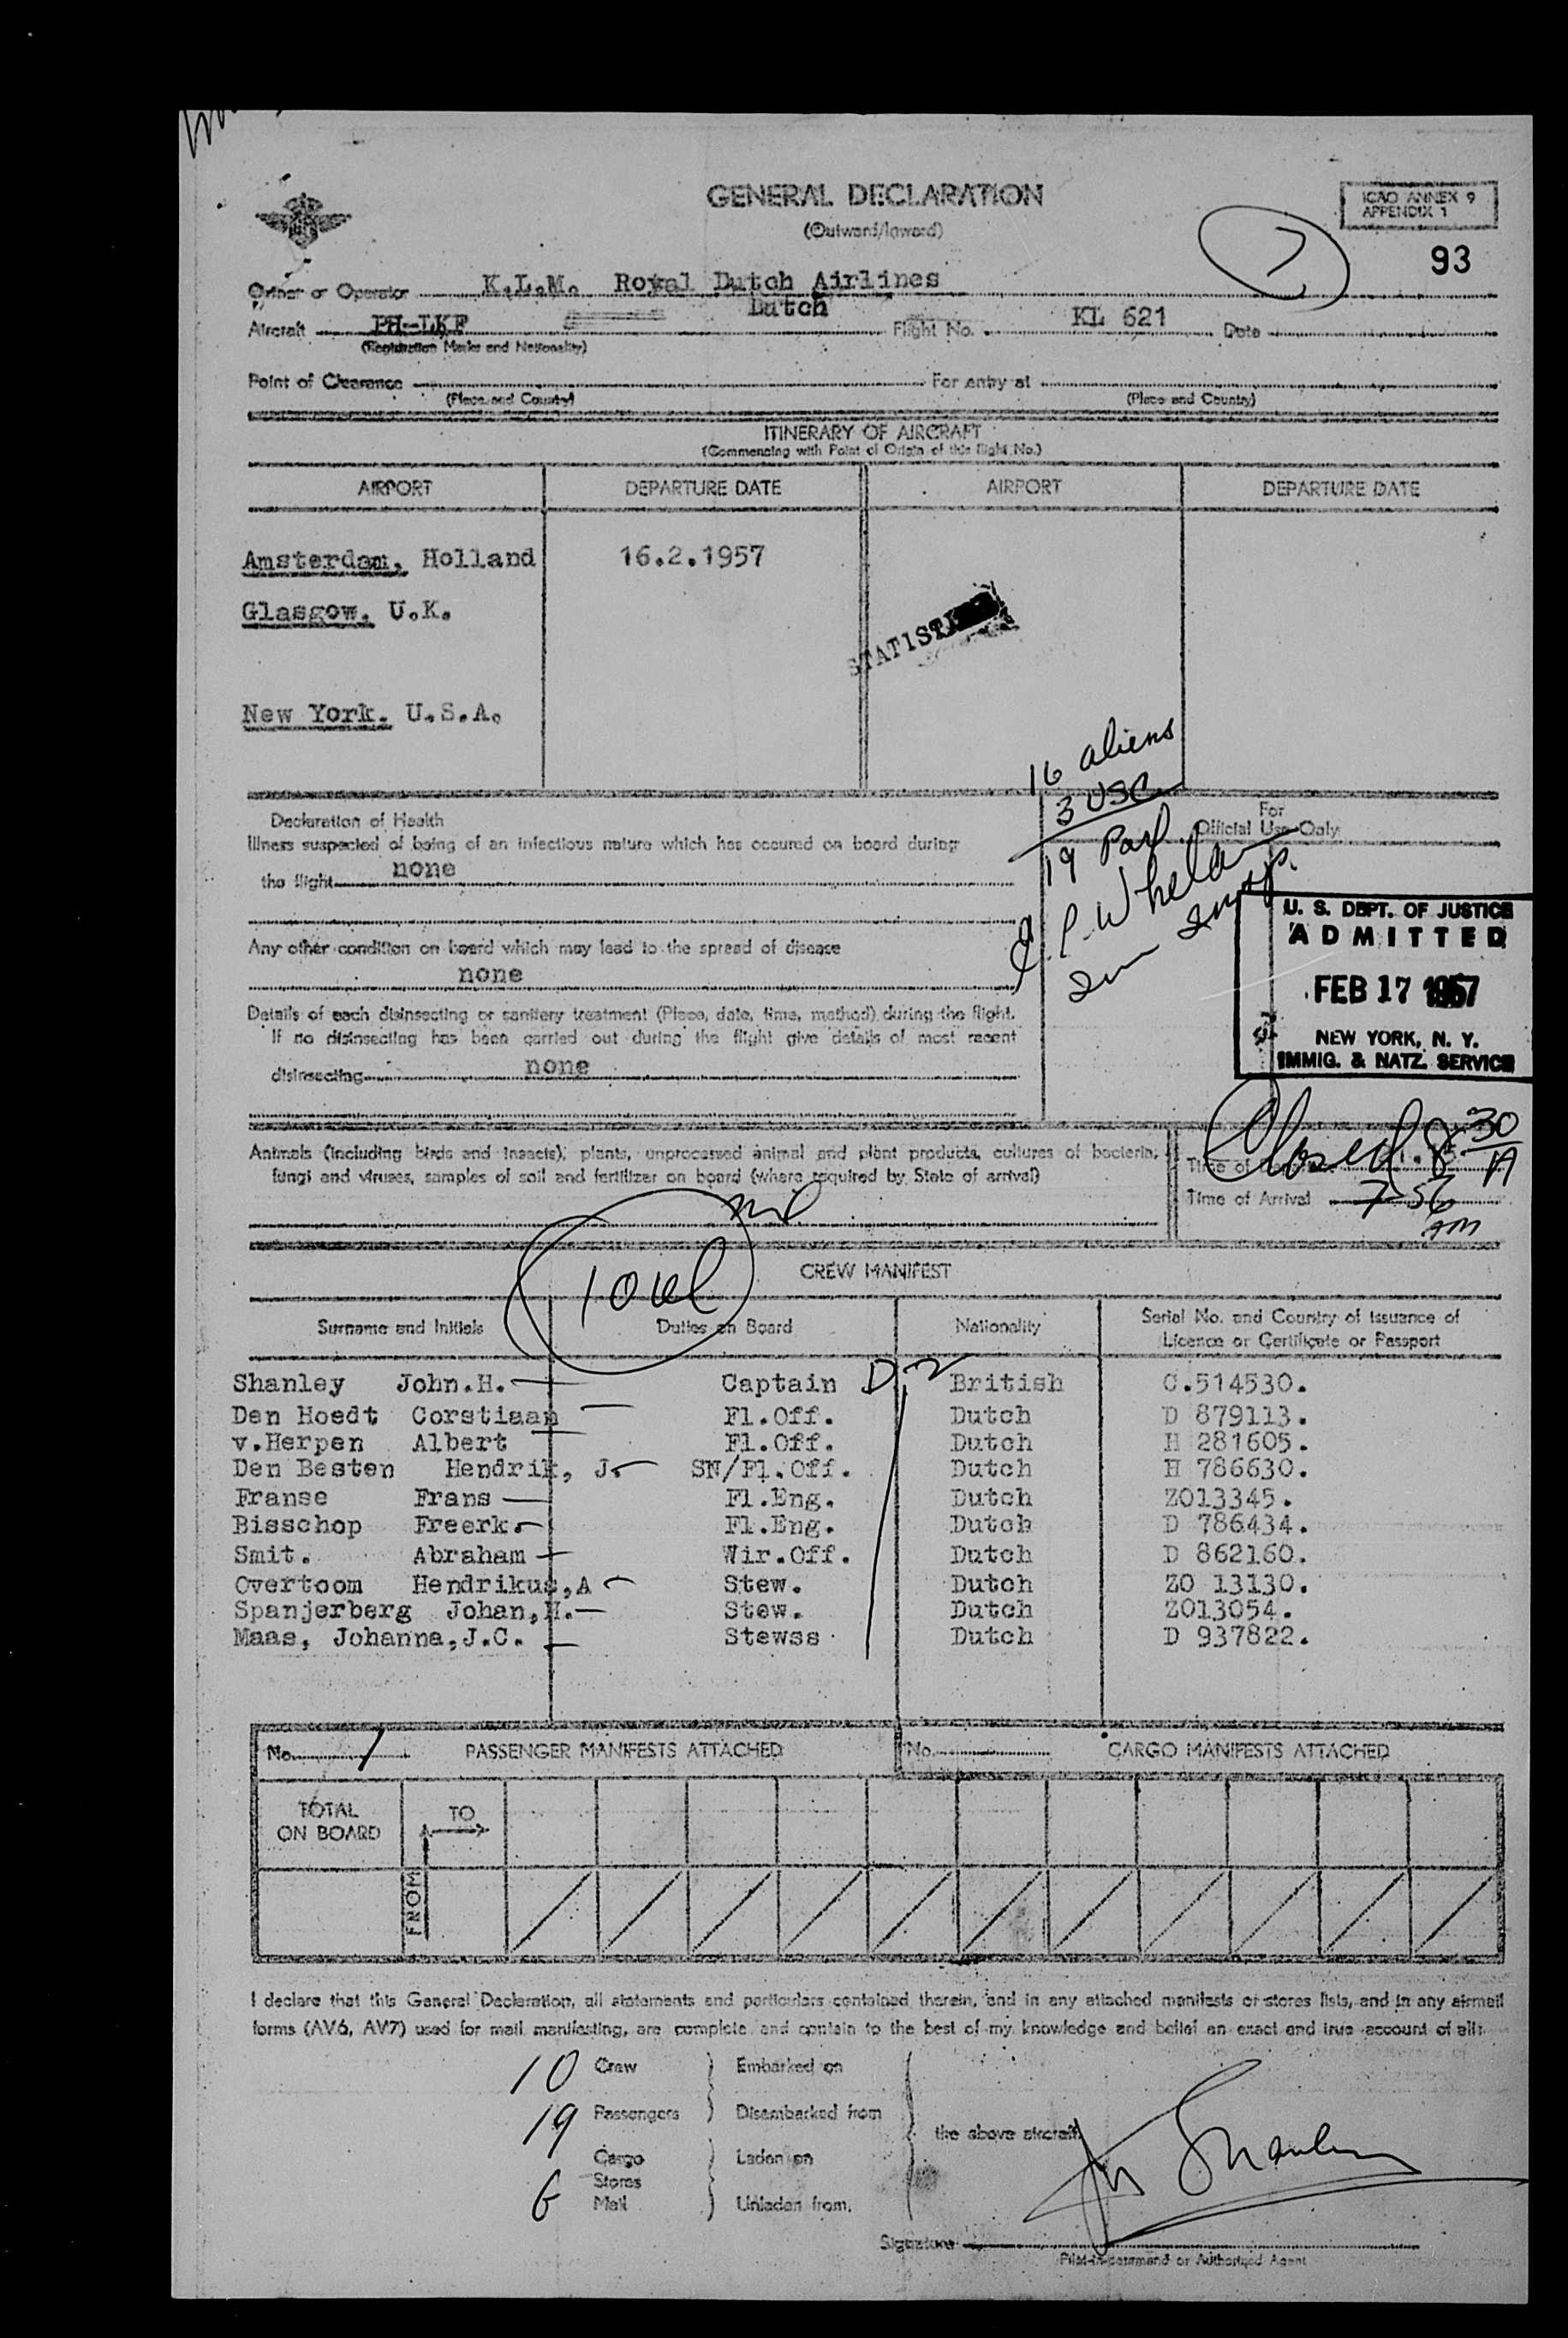 GENERAL DECLARATION
(Outward/Inward)
ICAO ANNEX 9
APPENDIX 1
7
93
Owner or Operator K.L.M. Royal Dutch Airlines
Dutch
Aircraft PH-LKF Flight No. KL 621 Date
(Registration Marks and Nationality)
Point of Clearance For entry at
(Place and Country) (Place and Country)
ITINERARY OF AIRCRAFT
(Commencing with Point of Origin of this flight No.)
AIRPORT DEPARTURE DATE AIRPORT DEPARTURE DATE
Amsterdam, Holland 16.2.1957
Glasgow, U.K.
New York. U.S.A.
16 aliens
3 USC
19 Pax
Whelan
Imm Insp.
Declaration of Health
For
Official Use Only
Illness suspected of being of an infectious nature which has occured on board during
the flight none
Any other condition on board which may lead to the spread of disease
none
Details of each disinsecting or sanitary treatment (Place, date, time, method) during the flight.
If no disinsecting has been carried out during the flight give details of most recent
disinsecting none
U. S. DEPT. OF JUSTICE
ADMITTED
FEB 17 1957
NEW YORK, N. Y.
IMMIG. & NATZ. SERVICE
Closed. 8 30 A
Animals (including birds and insects), plants, unprocessed animal and plant products, cultures of bacteria,
fungi and viruses, samples of soil and fertilizer on board (where required by State of arrival)
nil
Time of
Time of Arrival 7 56 AM
CREW MANIFEST
Surname and Initials Duties on Board Nationality Serial No. and Country of Issuance of
Licence or Certificate or Passport
Shanley John.H. Captain D-2 British C.514530.
Den Hoedt Corstiaan Fl.Off. Dutch D 879113.
v.Herpen Albert Fl.Off. Dutch H 281605.
Den Besten Hendrik, J. SN/Fl.Off. Dutch H 786630.
Franse Frans Fl.Eng. Dutch Z013345.
Bisschop Freerk. Fl.Eng. Dutch D 786434.
Smit. Abraham Wir.Off. Dutch D 862160.
Overtoom Hendrikus,A Stew. Dutch ZO 13130.
Spanjerberg Johan,H. Stew. Dutch Z013054.
Maas, Johanna,J.C. Stewss Dutch D 937822.
No. 1 PASSENGER MANIFESTS ATTACHED No. CARGO MANIFESTS ATTACHED
TOTAL
ON BOARD
TO
FROM
I declare that this General Declaration, all statements and particulars contained therein, and in any attached manifests or stores lists, and in any airmail
forms (AV6, AV7) used for mail manifesting, are complete and contain to the best of my knowledge and belief an exact and true account of all:
10 Crew Embarked on
19 Passengers Disembarked from
the above aircraft.
Cargo Laden on
Stores
6 Mail Unladen from.
Shanley
Signature
Pilot-in-command or Authorized Agent